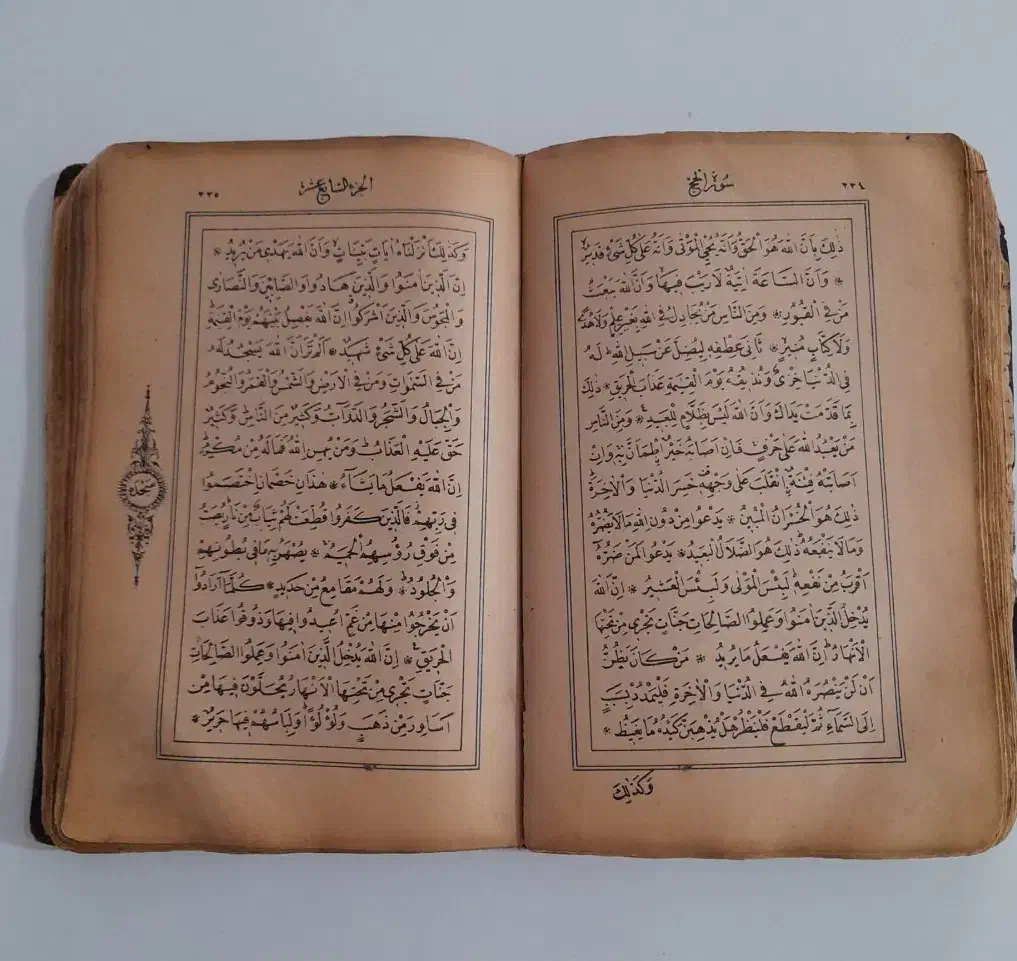 سورة الحج
٢٣٤
ذٰلِكَ بِاَنَّ اللّٰهَ هُوَ الْحَقُّ وَاَنَّهُ يُحْيِي الْمَوْتٰى وَاَنَّهُ عَلٰى كُلِّ شَيْءٍ قَدِيرٌ
* وَاَنَّ السَّاعَةَ اٰتِيَةٌ لَا رَيْبَ فِيهَا وَاَنَّ اللّٰهَ يَبْعَثُ
مَنْ فِي الْقُبُورِ * وَمِنَ النَّاسِ مَنْ يُجَادِلُ فِي اللّٰهِ بِغَيْرِ عِلْمٍ وَلَا هُدًى
وَلَا كِتَابٍ مُنِيرٍ * ثَانِيَ عِطْفِهِ لِيُضِلَّ عَنْ سَبِيلِ اللّٰهِ لَهُ
فِي الدُّنْيَا خِزْيٌ وَنُذِيقُهُ يَوْمَ الْقِيٰمَةِ عَذَابَ الْحَرِيقِ * ذٰلِكَ
بِمَا قَدَّمَتْ يَدَاكَ وَاَنَّ اللّٰهَ لَيْسَ بِظَلَّامٍ لِلْعَبِيدِ * وَمِنَ النَّاسِ
مَنْ يَعْبُدُ اللّٰهَ عَلٰى حَرْفٍ فَاِنْ اَصَابَهُ خَيْرٌ اطْمَاَنَّ بِهِ وَاِنْ
اَصَابَتْهُ فِتْنَةٌ انْقَلَبَ عَلٰى وَجْهِهِ خَسِرَ الدُّنْيَا وَالْاٰخِرَةَ
ذٰلِكَ هُوَ الْخُسْرَانُ الْمُبِينُ * يَدْعُوا مِنْ دُونِ اللّٰهِ مَا لَا يَضُرُّهُ
وَمَا لَا يَنْفَعُهُ ذٰلِكَ هُوَ الضَّلَالُ الْبَعِيدُ * يَدْعُوا لَمَنْ ضَرُّهُ
اَقْرَبُ مِنْ نَفْعِهِ لَبِئْسَ الْمَوْلٰى وَلَبِئْسَ الْعَشِيرُ * اِنَّ اللّٰهَ
يُدْخِلُ الَّذِينَ اٰمَنُوا وَعَمِلُوا الصَّالِحَاتِ جَنَّاتٍ تَجْرِي مِنْ تَحْتِهَا
الْاَنْهَارُ اِنَّ اللّٰهَ يَفْعَلُ مَا يُرِيدُ * مَنْ كَانَ يَظُنُّ
اَنْ لَنْ يَنْصُرَهُ اللّٰهُ فِي الدُّنْيَا وَالْاٰخِرَةِ فَلْيَمْدُدْ بِسَبَبٍ
اِلَى السَّمَاءِ ثُمَّ لْيَقْطَعْ فَلْيَنْظُرْ هَلْ يُذْهِبَنَّ كَيْدُهُ مَا يَغِيظُ *
وَكَذٰلِكَ
الجزء السابع عشر
٢٣٥
وَكَذٰلِكَ اَنْزَلْنَاهُ اٰيَاتٍ بَيِّنَاتٍ وَاَنَّ اللّٰهَ يَهْدِي مَنْ يُرِيدُ *
اِنَّ الَّذِينَ اٰمَنُوا وَالَّذِينَ هَادُوا وَالصَّابِئِينَ وَالنَّصَارٰى
وَالْمَجُوسَ وَالَّذِينَ اَشْرَكُوا اِنَّ اللّٰهَ يَفْصِلُ بَيْنَهُمْ يَوْمَ الْقِيٰمَةِ
اِنَّ اللّٰهَ عَلٰى كُلِّ شَيْءٍ شَهِيدٌ * اَلَمْ تَرَ اَنَّ اللّٰهَ يَسْجُدُ لَهُ
مَنْ فِي السَّمٰوَاتِ وَمَنْ فِي الْاَرْضِ وَالشَّمْسُ وَالْقَمَرُ وَالنُّجُومُ
وَالْجِبَالُ وَالشَّجَرُ وَالدَّوَابُّ وَكَثِيرٌ مِنَ النَّاسِ وَكَثِيرٌ
حَقَّ عَلَيْهِ الْعَذَابُ وَمَنْ يُهِنِ اللّٰهُ فَمَا لَهُ مِنْ مُكْرِمٍ
اِنَّ اللّٰهَ يَفْعَلُ مَا يَشَاءُ * هٰذَانِ خَصْمَانِ اخْتَصَمُوا
فِي رَبِّهِمْ فَالَّذِينَ كَفَرُوا قُطِّعَتْ لَهُمْ ثِيَابٌ مِنْ نَارٍ يُصَبُّ
مِنْ فَوْقِ رُؤُسِهِمُ الْحَمِيمُ * يُصْهَرُ بِهِ مَا فِي بُطُونِهِمْ
وَالْجُلُودُ * وَلَهُمْ مَقَامِعُ مِنْ حَدِيدٍ * كُلَّمَا اَرَادُوا
اَنْ يَخْرُجُوا مِنْهَا مِنْ غَمٍّ اُعِيدُوا فِيهَا وَذُوقُوا عَذَابَ
الْحَرِيقِ * اِنَّ اللّٰهَ يُدْخِلُ الَّذِينَ اٰمَنُوا وَعَمِلُوا الصَّالِحَاتِ
جَنَّاتٍ تَجْرِي مِنْ تَحْتِهَا الْاَنْهَارُ يُحَلَّوْنَ فِيهَا مِنْ
اَسَاوِرَ مِنْ ذَهَبٍ وَلُؤْلُؤًا وَلِبَاسُهُمْ فِيهَا حَرِيرٌ *
سجده